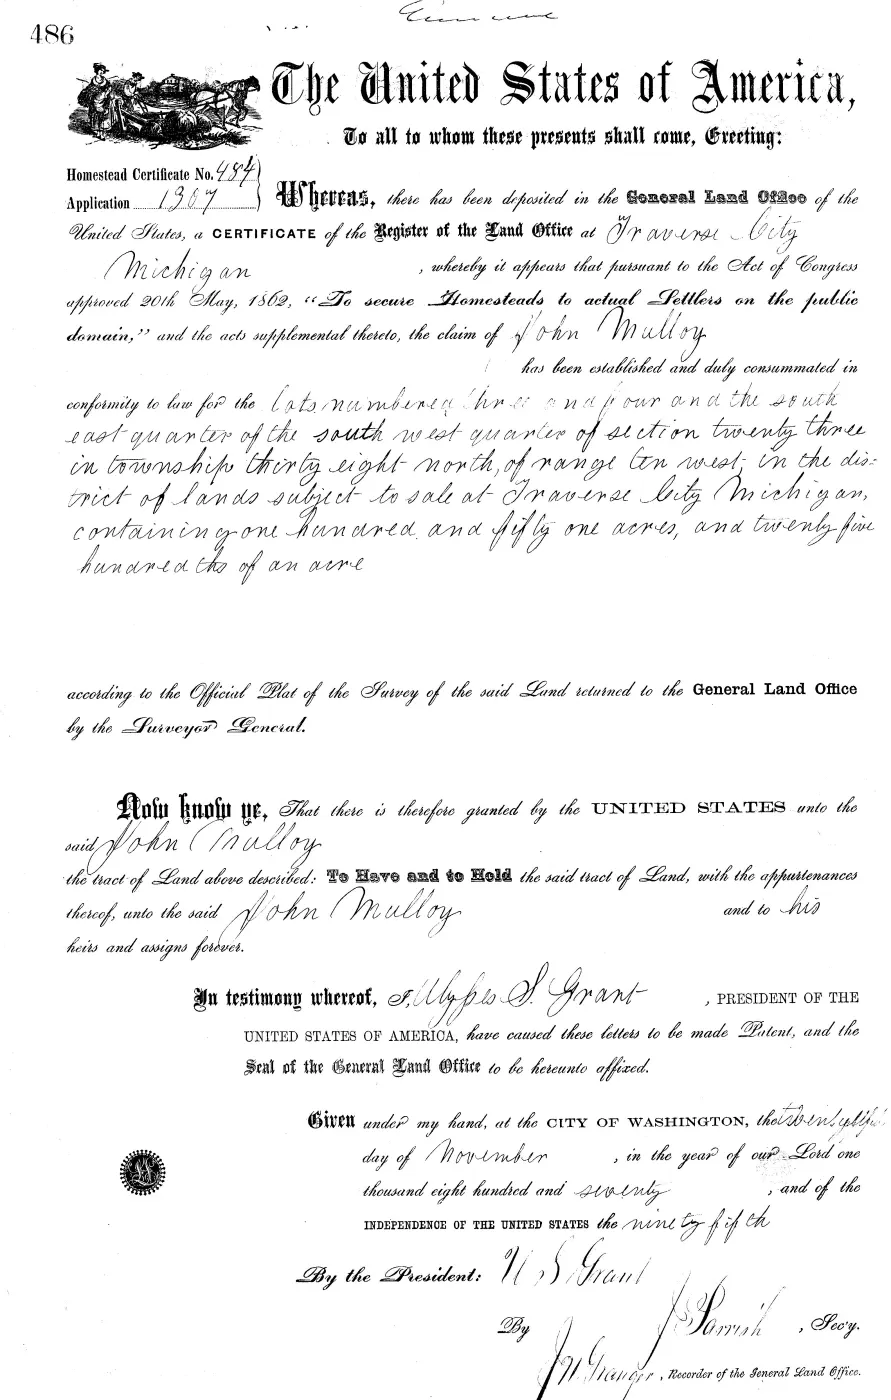 486
The United States of America,
To all to whom these presents shall come, Greeting:
Homestead Certificate No. 484
Application 1307
Whereas, there has been deposited in the General Land Office of the
United States, a CERTIFICATE of the Register of the Land Office at Traverse City
Michigan , whereby it appears that pursuant to the Act of Congress
approved 20th May, 1862, "To secure Homesteads to actual Settlers on the public
domain," and the acts supplemental thereto, the claim of John Mulloy
has been established and duly consummated in
conformity to law for the lots numbered three and four and the south
east quarter of the south west quarter of section twenty three
in township thirty eight north, of range ten west, in the dis=
trict of lands subject to sale at Traverse City Michigan,
containing one hundred and fifty one acres, and twenty five
hundredths of an acre
according to the Official Plat of the Survey of the said Land returned to the General Land Office
by the Surveyor General.
Now know ye, That there is therefore granted by the UNITED STATES unto the
said John Mulloy
the tract of Land above described: To Have and to Hold the said tract of Land, with the appurtenances
thereof, unto the said John Mulloy and to his
heirs and assigns forever.
In testimony whereof, I, Ulysses S. Grant , PRESIDENT OF THE
UNITED STATES OF AMERICA, have caused these letters to be made Patent, and the
Seal of the General Land Office to be hereunto affixed.
Given under my hand, at the CITY OF WASHINGTON, the
day of November , in the year of our Lord one
thousand eight hundred and seventy , and of the
INDEPENDENCE OF THE UNITED STATES the ninety fifth
By the President: U S Grant
By J Parrish , Sec'y.
J N Granger , Recorder of the General Land Office.